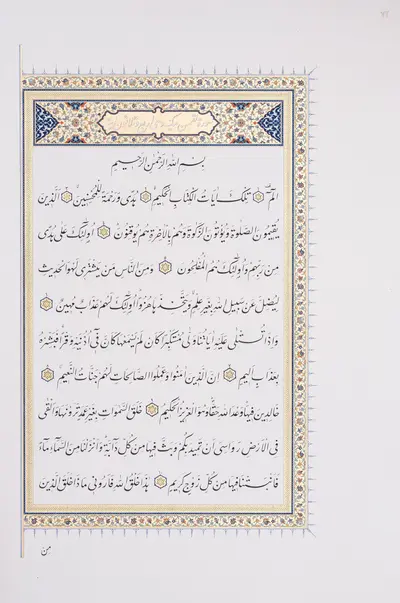 سورة لقمن
بِسْمِ اللهِ الرَّحْمٰنِ الرَّحِيمِ
الٓمٓ تِلْكَ ايَاتُ الْكِتَابِ الْحَكِيمِ هُدًى وَرَحْمَةً لِلْمُحْسِنِينَ الَّذِينَ
يُقِيمُونَ الصَّلٰوةَ وَيُؤْتُونَ الزَّكٰوةَ وَهُمْ بِالْاخِرَةِ هُمْ يُوقِنُونَ اُولٰئِكَ عَلٰى هُدًى
مِنْ رَبِّهِمْ وَاُولٰئِكَ هُمُ الْمُفْلِحُونَ وَمِنَ النَّاسِ مَنْ يَشْتَرِى لَهْوَ الْحَدِيثِ
لِيُضِلَّ عَنْ سَبِيلِ اللهِ بِغَيْرِ عِلْمٍ وَيَتَّخِذَهَا هُزُوًا اُولٰئِكَ لَهُمْ عَذَابٌ مُهِينٌ
وَاِذَا تُتْلٰى عَلَيْهِ ايَاتُنَا وَلّٰى مُسْتَكْبِرًا كَاَنْ لَمْ يَسْمَعْهَا كَاَنَّ فِى اُذُنَيْهِ وَقْرًا فَبَشِّرْهُ
بِعَذَابٍ اَلِيمٍ اِنَّ الَّذِينَ امَنُوا وَعَمِلُوا الصَّالِحَاتِ لَهُمْ جَنَّاتُ النَّعِيمِ
خَالِدِينَ فِيهَا وَعْدَ اللهِ حَقًّا وَهُوَ الْعَزِيزُ الْحَكِيمُ خَلَقَ السَّمٰوَاتِ بِغَيْرِ عَمَدٍ تَرَوْنَهَا وَاَلْقٰى
فِى الْاَرْضِ رَوَاسِىَ اَنْ تَمِيدَ بِكُمْ وَبَثَّ فِيهَا مِنْ كُلِّ دَابَّةٍ وَاَنْزَلْنَا مِنَ السَّمَاءِ مَاءً
فَاَنْبَتْنَا فِيهَا مِنْ كُلِّ زَوْجٍ كَرِيمٍ هٰذَا خَلْقُ اللهِ فَاَرُونِى مَاذَا خَلَقَ الَّذِينَ
مِن